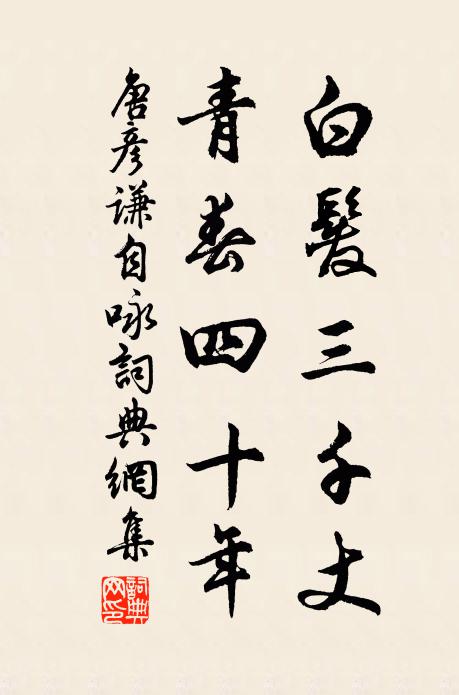 白髮三千丈
青春四十年
唐彥謙自咏詞典網集
詞典網印